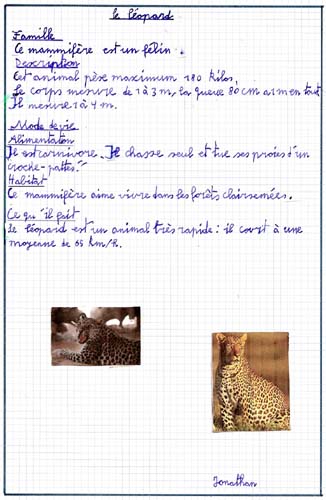 le léopard
Famille
Ce mammifère est un félin.
Description
Cet animal pèse maximum 180 kilos.
Le corps mesure de 1 à 3 m, la queue 80 cm a 1 m en tout
Il mesure 1 à 4 m.
Mode de vie
Alimentation
Il est carnivore. Il chasse seul et tue ses proies d'un
croche-pattes.
Habitat
Ce mammifère aime vivre dans les forêts clairsemées.
Ce qu'il fait
Le léopard est un animal très rapide : il court à une
moyenne de 65 km/h.
Jonathan